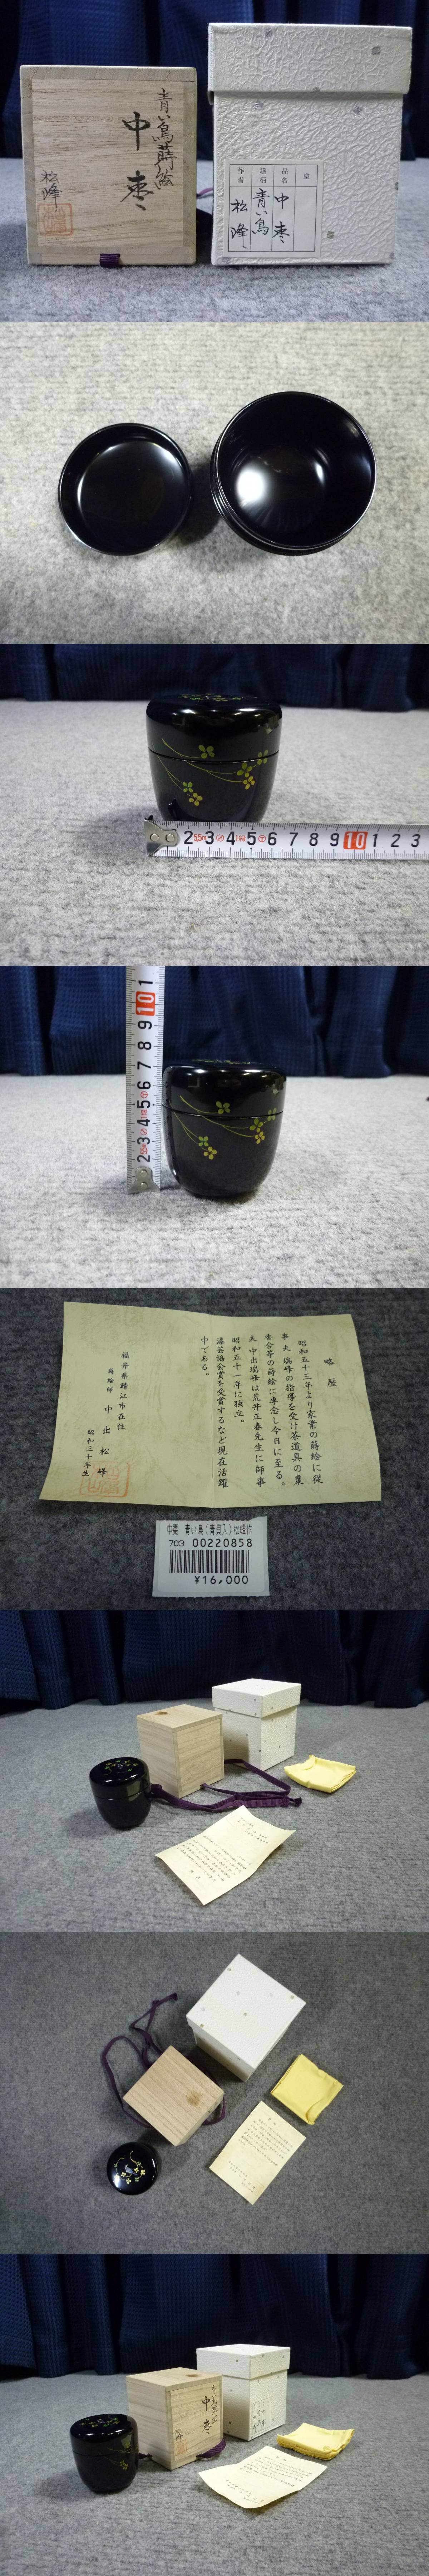 青い鳥蒔絵
中棗
松峰
塗
品名
中棗
絵柄
青い鳥
作者
松峰
2 3 4 5 6 7 8 9 10 1 2 3
2 3 4 5 6 7 8 9 10 1
略歴
昭和五十三年より家業の蒔絵に従
事夫 瑞峰の指導を受け茶道具の棗
香合等の蒔絵に専念し今日に至る。
夫 中出瑞峰は荒井正春先生に師事
昭和五十一年に独立。
漆芸協会賞を受賞するなど現在活躍
中である。
福井県鯖江市在住
蒔絵師 中出松峰
昭和三十年生
中棗 青い鳥(青貝入)松峰作
703 00220858
¥16,000
中棗